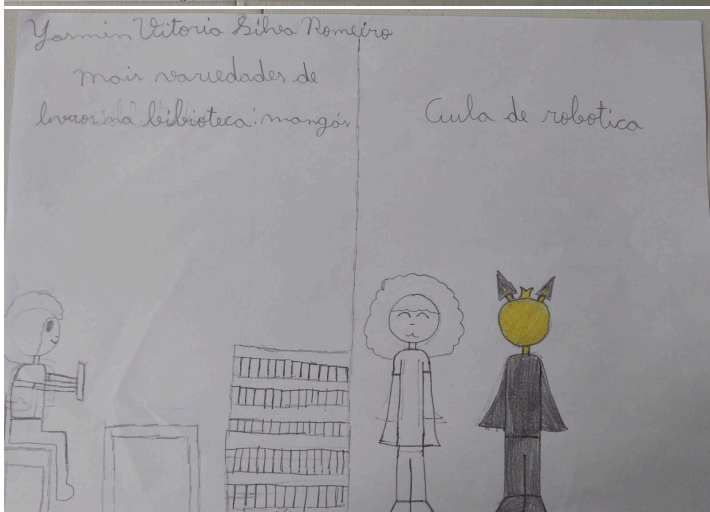 Yasmin Vitoria Silva Romeiro
mais variedades de
livros na bibioteca: mangás
Aula de robotica